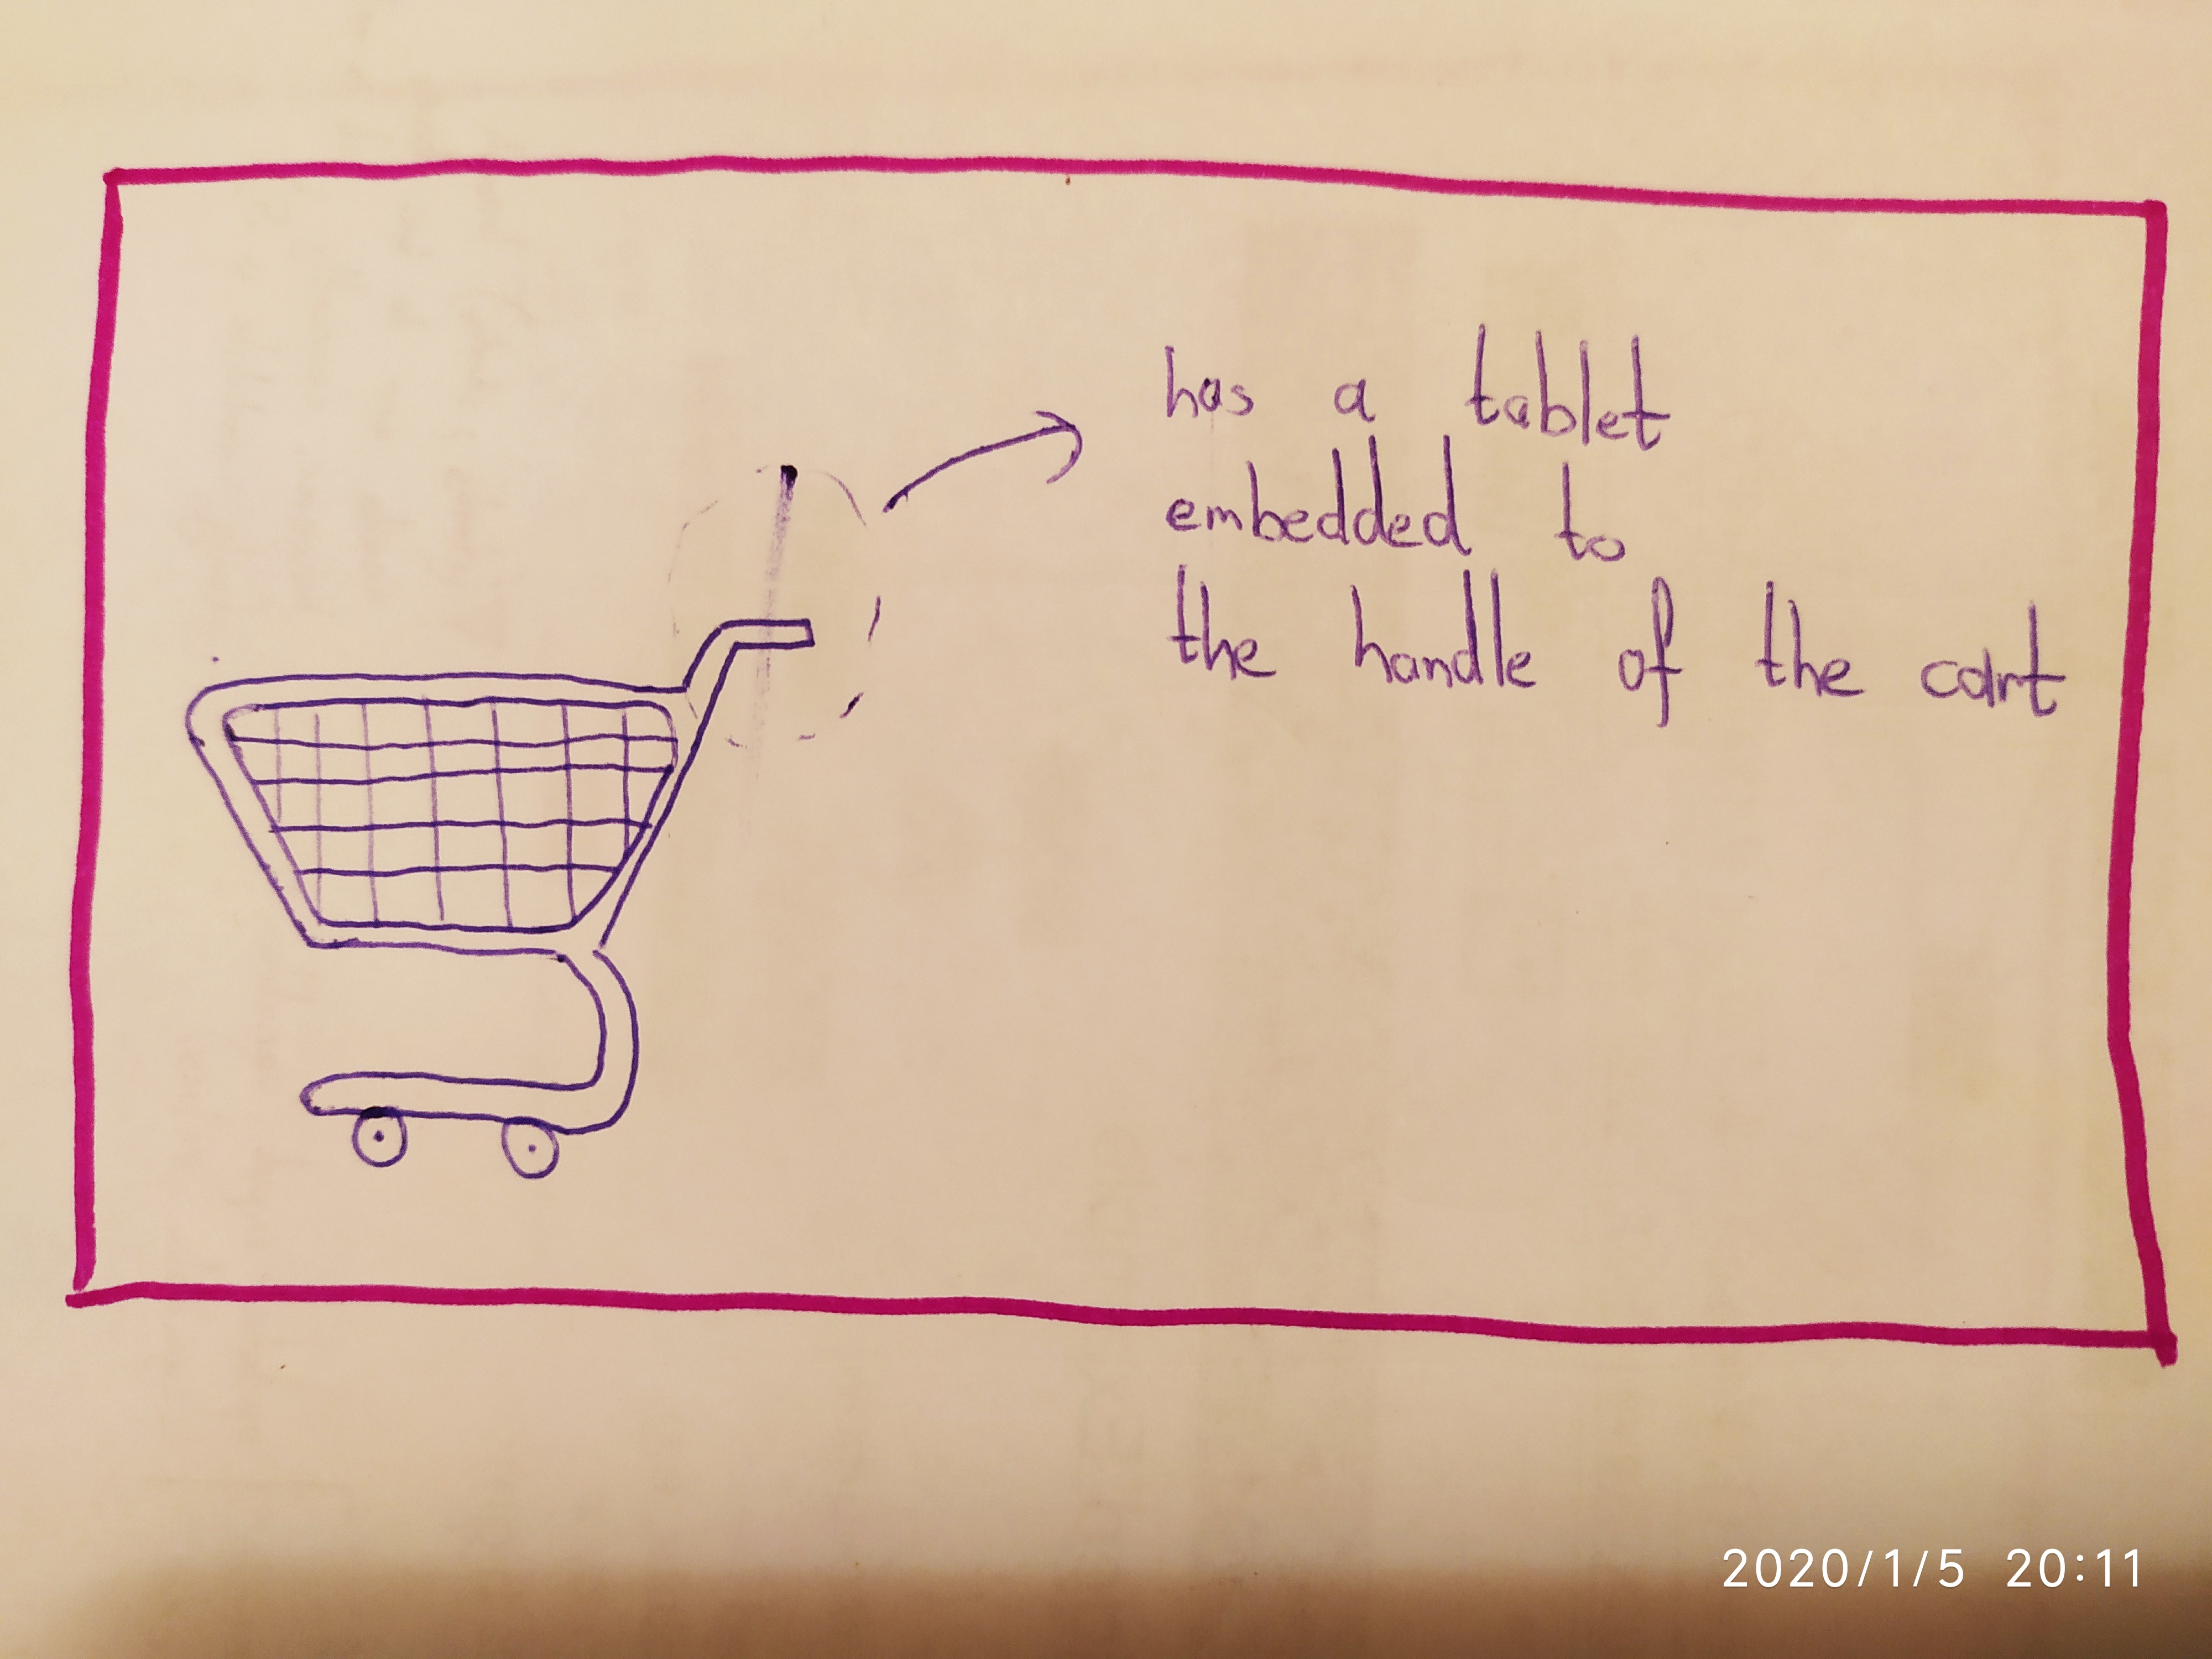 has a tablet
embedded to
the handle of the cart
2020/1/5 20:11